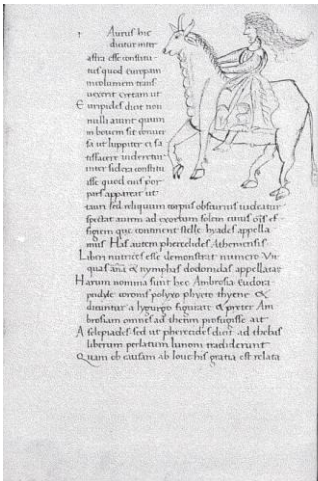 Aurus hic
dicitur inter
astra esse constitu
tus quod europam
incolumem trans
uexerit cretam ut
Euripides dicit non
nulli aiunt quum
in bouem sit conuer
sa ut Iuppiter ei sa
tisfacere uideretur
inter sidera constitu
isse quod eius prior
pars appareat ut
tauri sed reliquum corpus obscurius uideatur
spectat autem ad exortum solis cuius oris ef
figiem que continent stelle hyades appella
mus Has autem pherecides Athemensis
Liberi nutrices esse demonstrat numero VII
quas & nymphas dodonidas appellatas
Harum nomina sunt hec Ambrosia eudora
pedyle coronis polyxo phyeto thyene &
dicuntur a lygurgo fugatae & preter Am
brosiam omnes ad thetim profugisse ait
Asclepiades sed ut pherecides dicit ad thebas
liberum perlatum Iunoni tradiderunt
Quam ob causam ab Ioue his gratia est relata